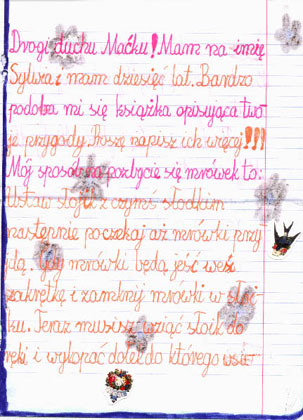 Drogi duchu Maćku! Mam na imię
Sylwia i mam dziesięć lat. Bardzo
podoba mi się książka opisująca two
je przygody. Proszę napisz ich więcej!!!
Mój sposób na pozbycie się mrówek to:
Ustaw słoik z czymś słodkim
następnie poczekaj aż mrówki przy
jdą. Gdy mrówki będą jeść weź
zakrętkę i zamknij mrówki w słoi-
ku. Teraz musisz wziąć słoik do
ręki i wykopać dołek do którego